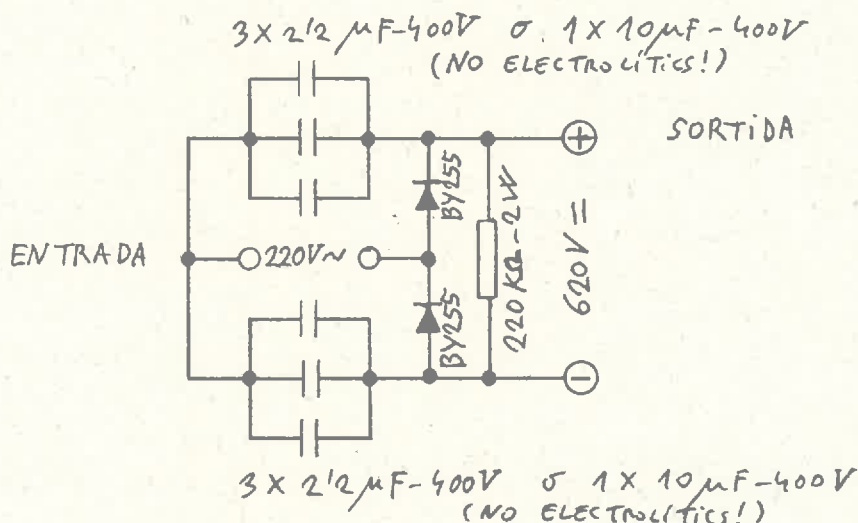 3 X 2'2 µF-400V o. 1 X 10µF-400V
(NO ELECTROLÍTICS!)
SORTIDA
+
BY255
ENTRADA
220V~
220 KΩ-2W
620V =
BY255
-
3 X 2'2 µF-400V o 1 X 10µF-400V
(NO ELECTROLÍTICS!)